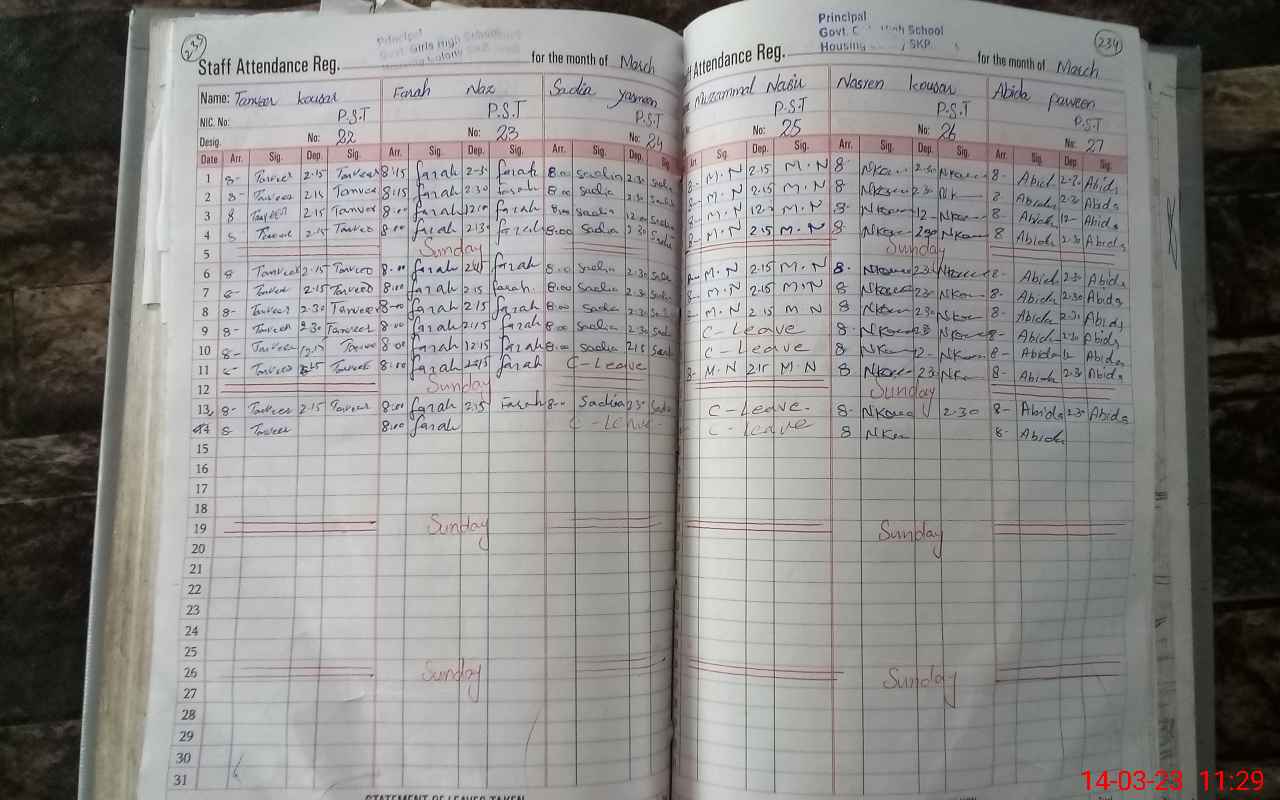 234
Principal
Govt. Girls High School
Staff Attendance Reg.
for the month of March
Name: Tanveer Kousar
Farah Naz
Sadia Yasmeen
NIC. No:
P.S.T
P.S.T
P.S.T
Desig.
No: 22
No: 23
No: 24
Date Arr. Sig. Dep. Sig. Arr. Sig. Dep. Sig. Arr. Sig. Dep. Sig.
1 8- Tanveer 2.15 Tanveer 8:15 farah 2.30 farah 8.00 Sadia 2.30 Sadia
2 8- Tanveer 2.15 Tanveer 8:15 farah 2.30 farah 8.00 Sadia 2.30 Sadia
3 8 Tanveer 2.15 Tanveer 8.00 farah 12.00 farah 8.00 Sadia 12.00 Sadia
4 8 Tanveer 2.15 Tanveer 8.00 farah 2.30 farah 8.00 Sadia 2.30 Sadia
5 Sunday
6 8 Tanveer 2.15 Tanveer 8.00 farah farah 8.00 Sadia 2.30 Sadia
7 8- Tanveer 2.15 Tanveer 8.00 farah 2.15 farah 8.00 Sadia 2.30 Sadia
8 8- Tanveer 2.30 Tanveer 8.00 farah 2.15 farah 8.00 Sadia 2.30
9 8- Tanveer 2.30 Tanveer 8.00 farah 2.15 farah 8.00 Sadia 2.30 Sadia
10 8- Tanveer Tanveer 8.00 farah 12.15 farah 8.00 Sadia
11 8- Tanveer Tanveer 8.00 farah farah C-Leave
12 Sunday
13 8- Tanveer 2.15 Tanveer 8.00 farah 2.15 Farah 8.00 Sadia 2.30 Sadia
14 8- Tanveer 8.00 farah C-Leave
15
16
17
18
19 Sunday
20
21
22
23
24
25
26 Sunday
27
28
29
30
31
STATEMENT OF LEAVES TAKEN
Principal
Govt. High School
Housing SKP
234
Attendance Reg.
for the month of March
Muzammal Nasir
Nasren Kousar
Abida Parveen
P.S.T
P.S.T
P.S.T
No: 25
No: 26
No: 27
Arr. Sig. Dep. Sig. Arr. Sig. Dep. Sig. Arr. Sig. Dep. Sig.
8- M.N 2.15 M.N 8- 2.30 8- Abida 2.30 Abida
8- M.N 2.15 M.N 8 2.30 8 Abida 2.30 Abida
8- M.N M.N 8- 12- 8- Abida 12- Abida
8- M.N 2.15 M.N 8 2.30 8- Abida 2.30 Abida
Sunday
8- M.N 2.15 M.N 8- 2.30 8- Abida 2.30 Abida
8- M.N 2.15 M.N 8 2.30 8- Abida 2.30 Abida
8- M.N 2.15 M N 8 2.30 8- Abida 2.30 Abida
C-Leave 8- 8- Abida 2.30 Abida
C-Leave 8- 12- 8- Abida 12 Abida
8- M.N 2.15 M.N 8 2.30 8- Abida 2.30 Abida
Sunday
C-Leave. 8- 2.30 8- Abida 2.30 Abida
C-leave 8 8- Abida
Sunday
Sunday
14-03-23 11:29